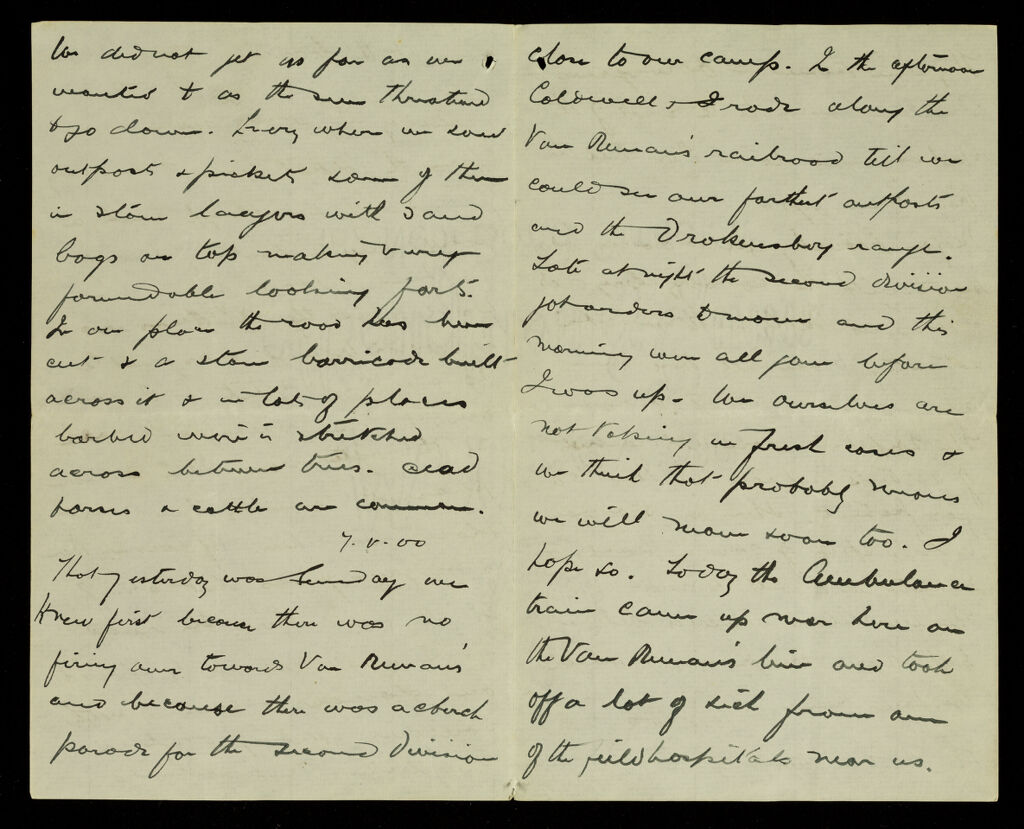 We did not get as far as we
wanted to as the sun threatened
to go down. Every where we saw
outposts & pickets some of them
in stone laagers with sand
bags on top making very
formidable looking forts.
In one place the road has been
cut & a stone barricade built
across it & in lots of places
barbed wire is stretched
across between trees. dead
horses & cattle are common.
7.V.00
That yesterday was Sunday we
knew first because there was no
firing over towards Van Reenan's
and because there was a church
parade for the second Division
close to our camp. In the afternoon
Coldwell & I rode along the
Van Reenan's railroad till we
could see our farthest outposts
and the Drakensberg range.
Late at night the second division
got orders to move and this
morning were all gone before
I was up. We ourselves are
not taking in fresh cases &
we think that probably means
we will move soon too. I
hope so. Today the Ambulance
train came up near here on
the Van Reenan's line and took
off a lot of sick from one
of the field hospitals near us.